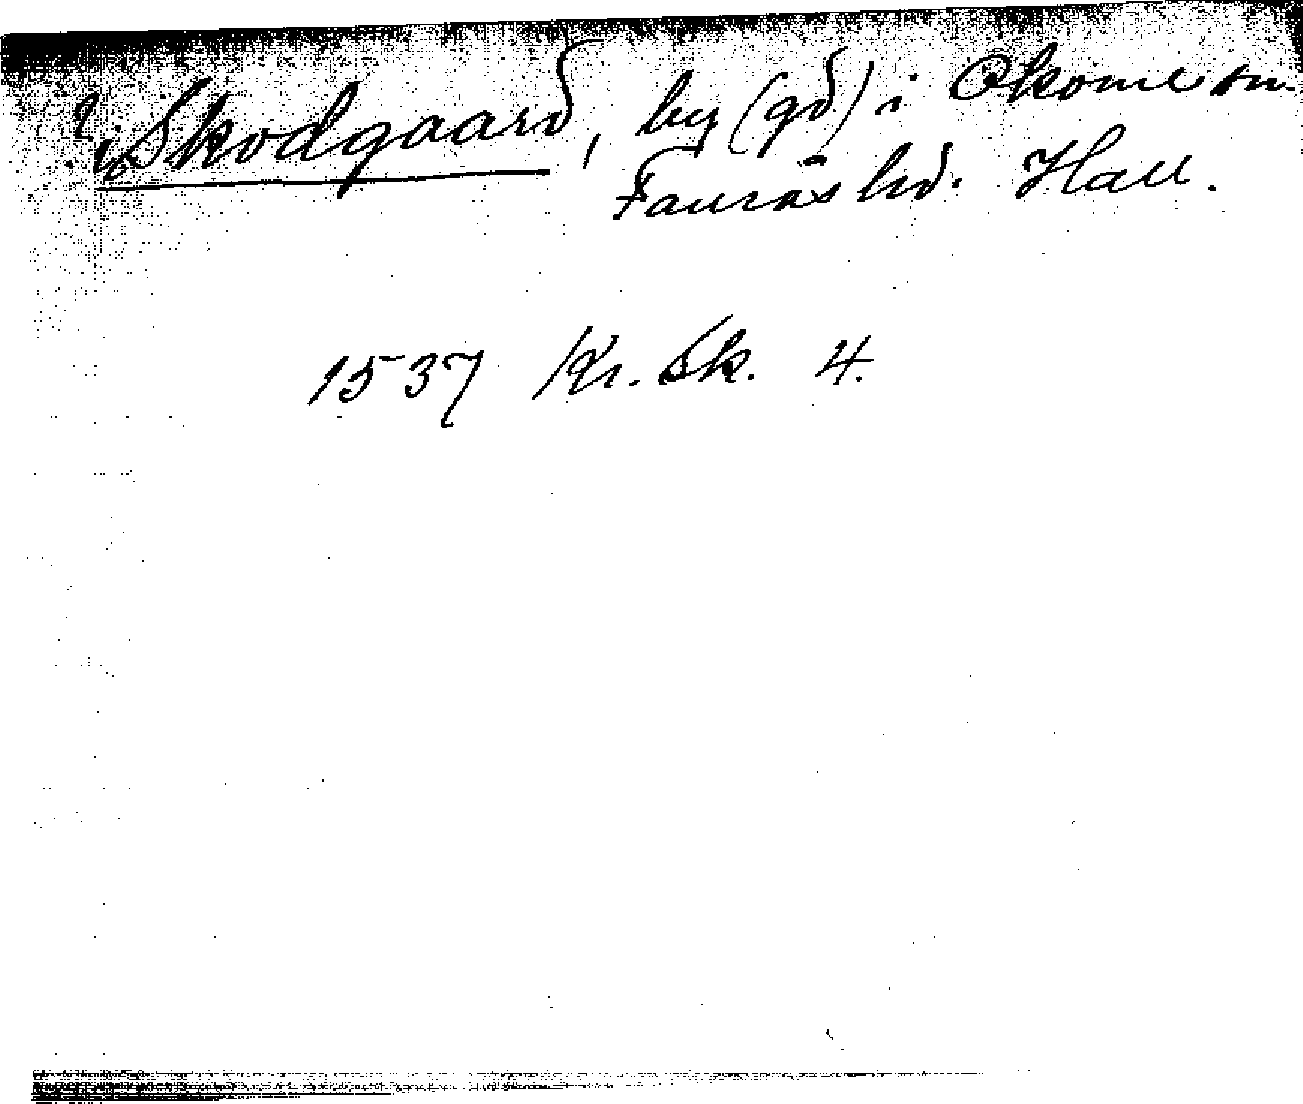 ? Skodgaard, by (gd) i Okome sn.
Faurås hd. Hall.
1537 Kr. Sk. 4.